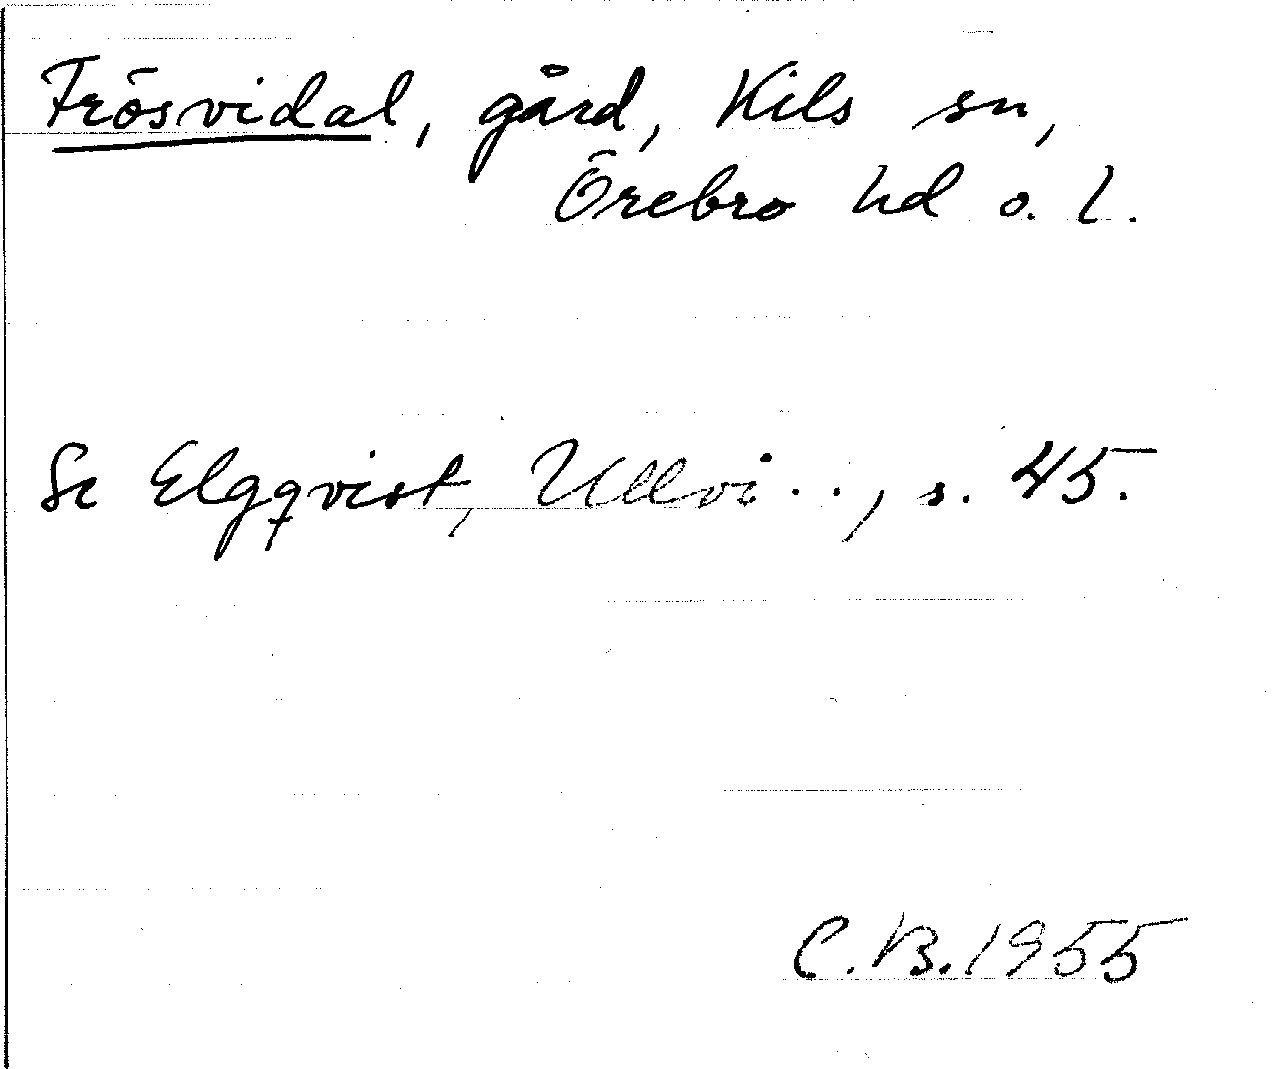 Frösvidal, gård, Kils sn,
Örebro hd o. l.
Se Elgqvist, Ullvi . . , s. 45.
C.B. 1955